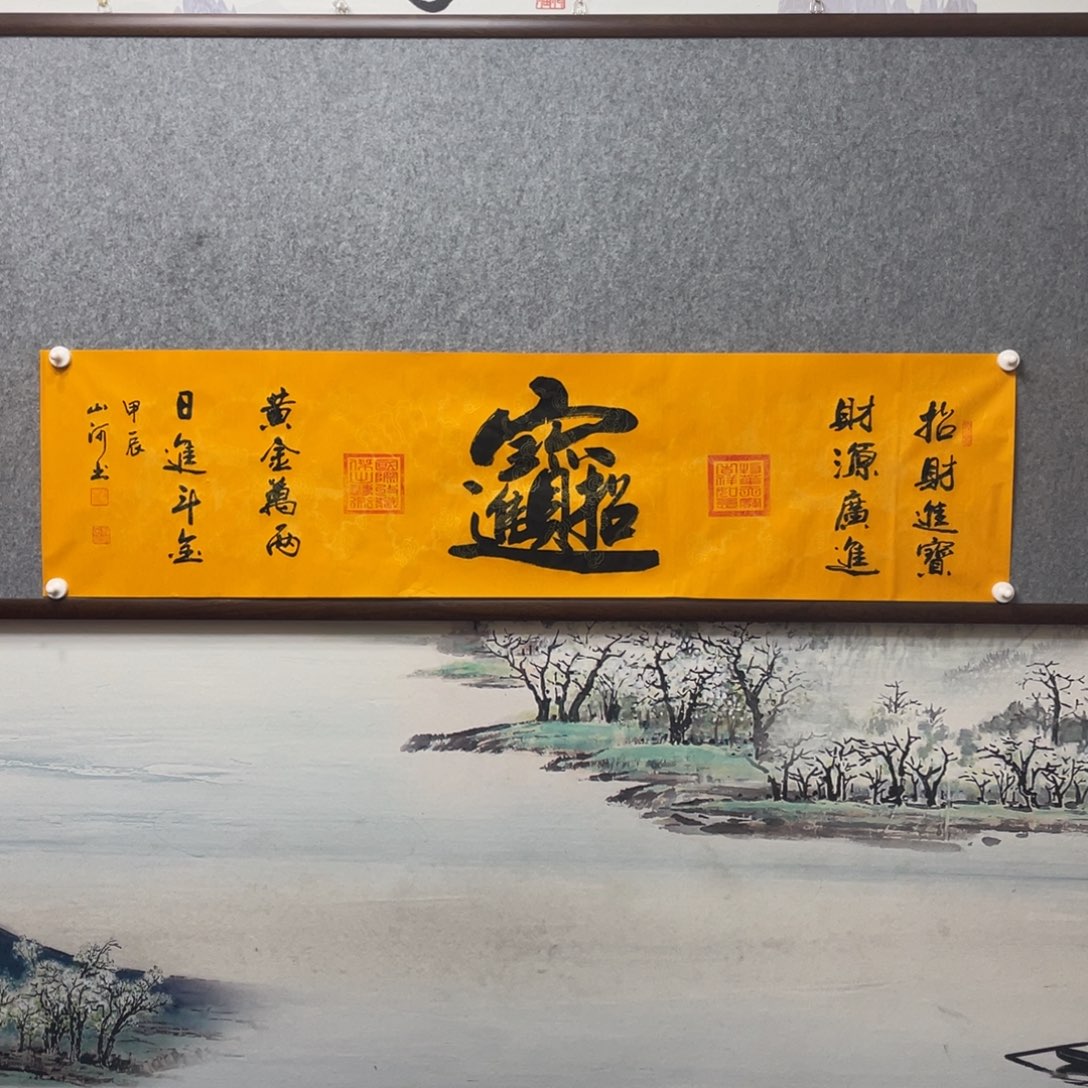 招財進寶
財源廣進
招財進寶
黃金萬兩
日進斗金
甲辰
山河书